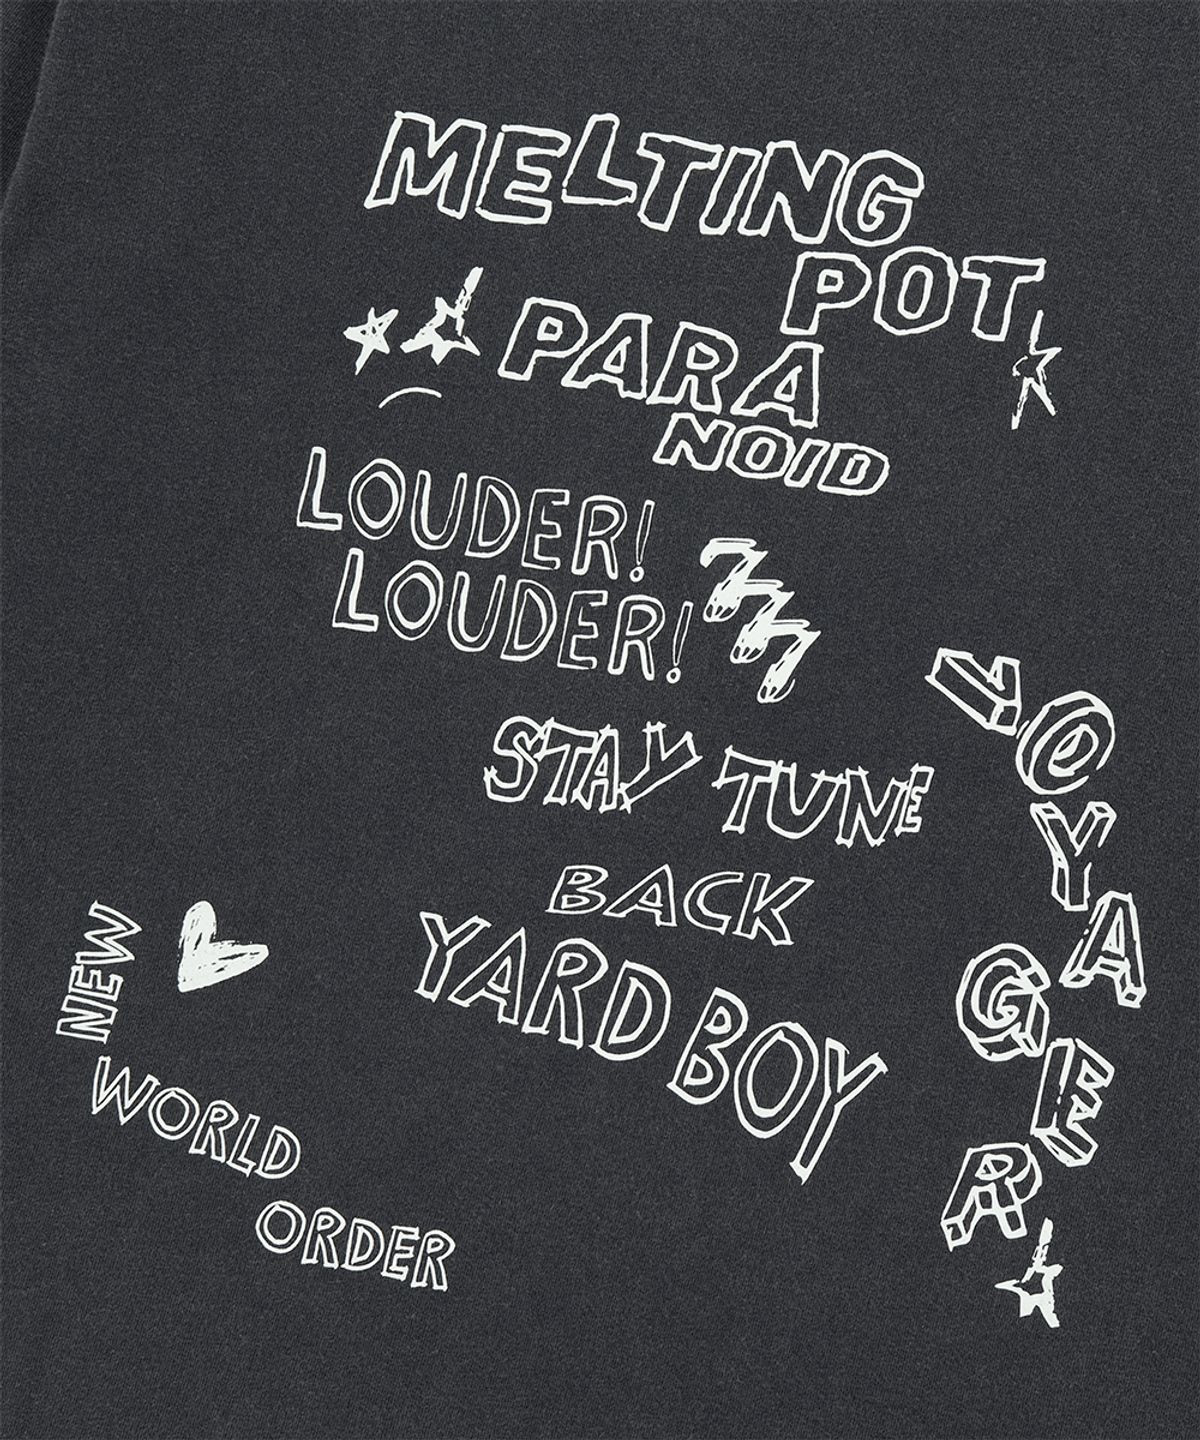 MELTING
POT
PARA
NOID
LOUDER!
LOUDER!
777
STAY TUNE
BACK
YARD BOY
VOYAGER
NEW
WORLD
ORDER